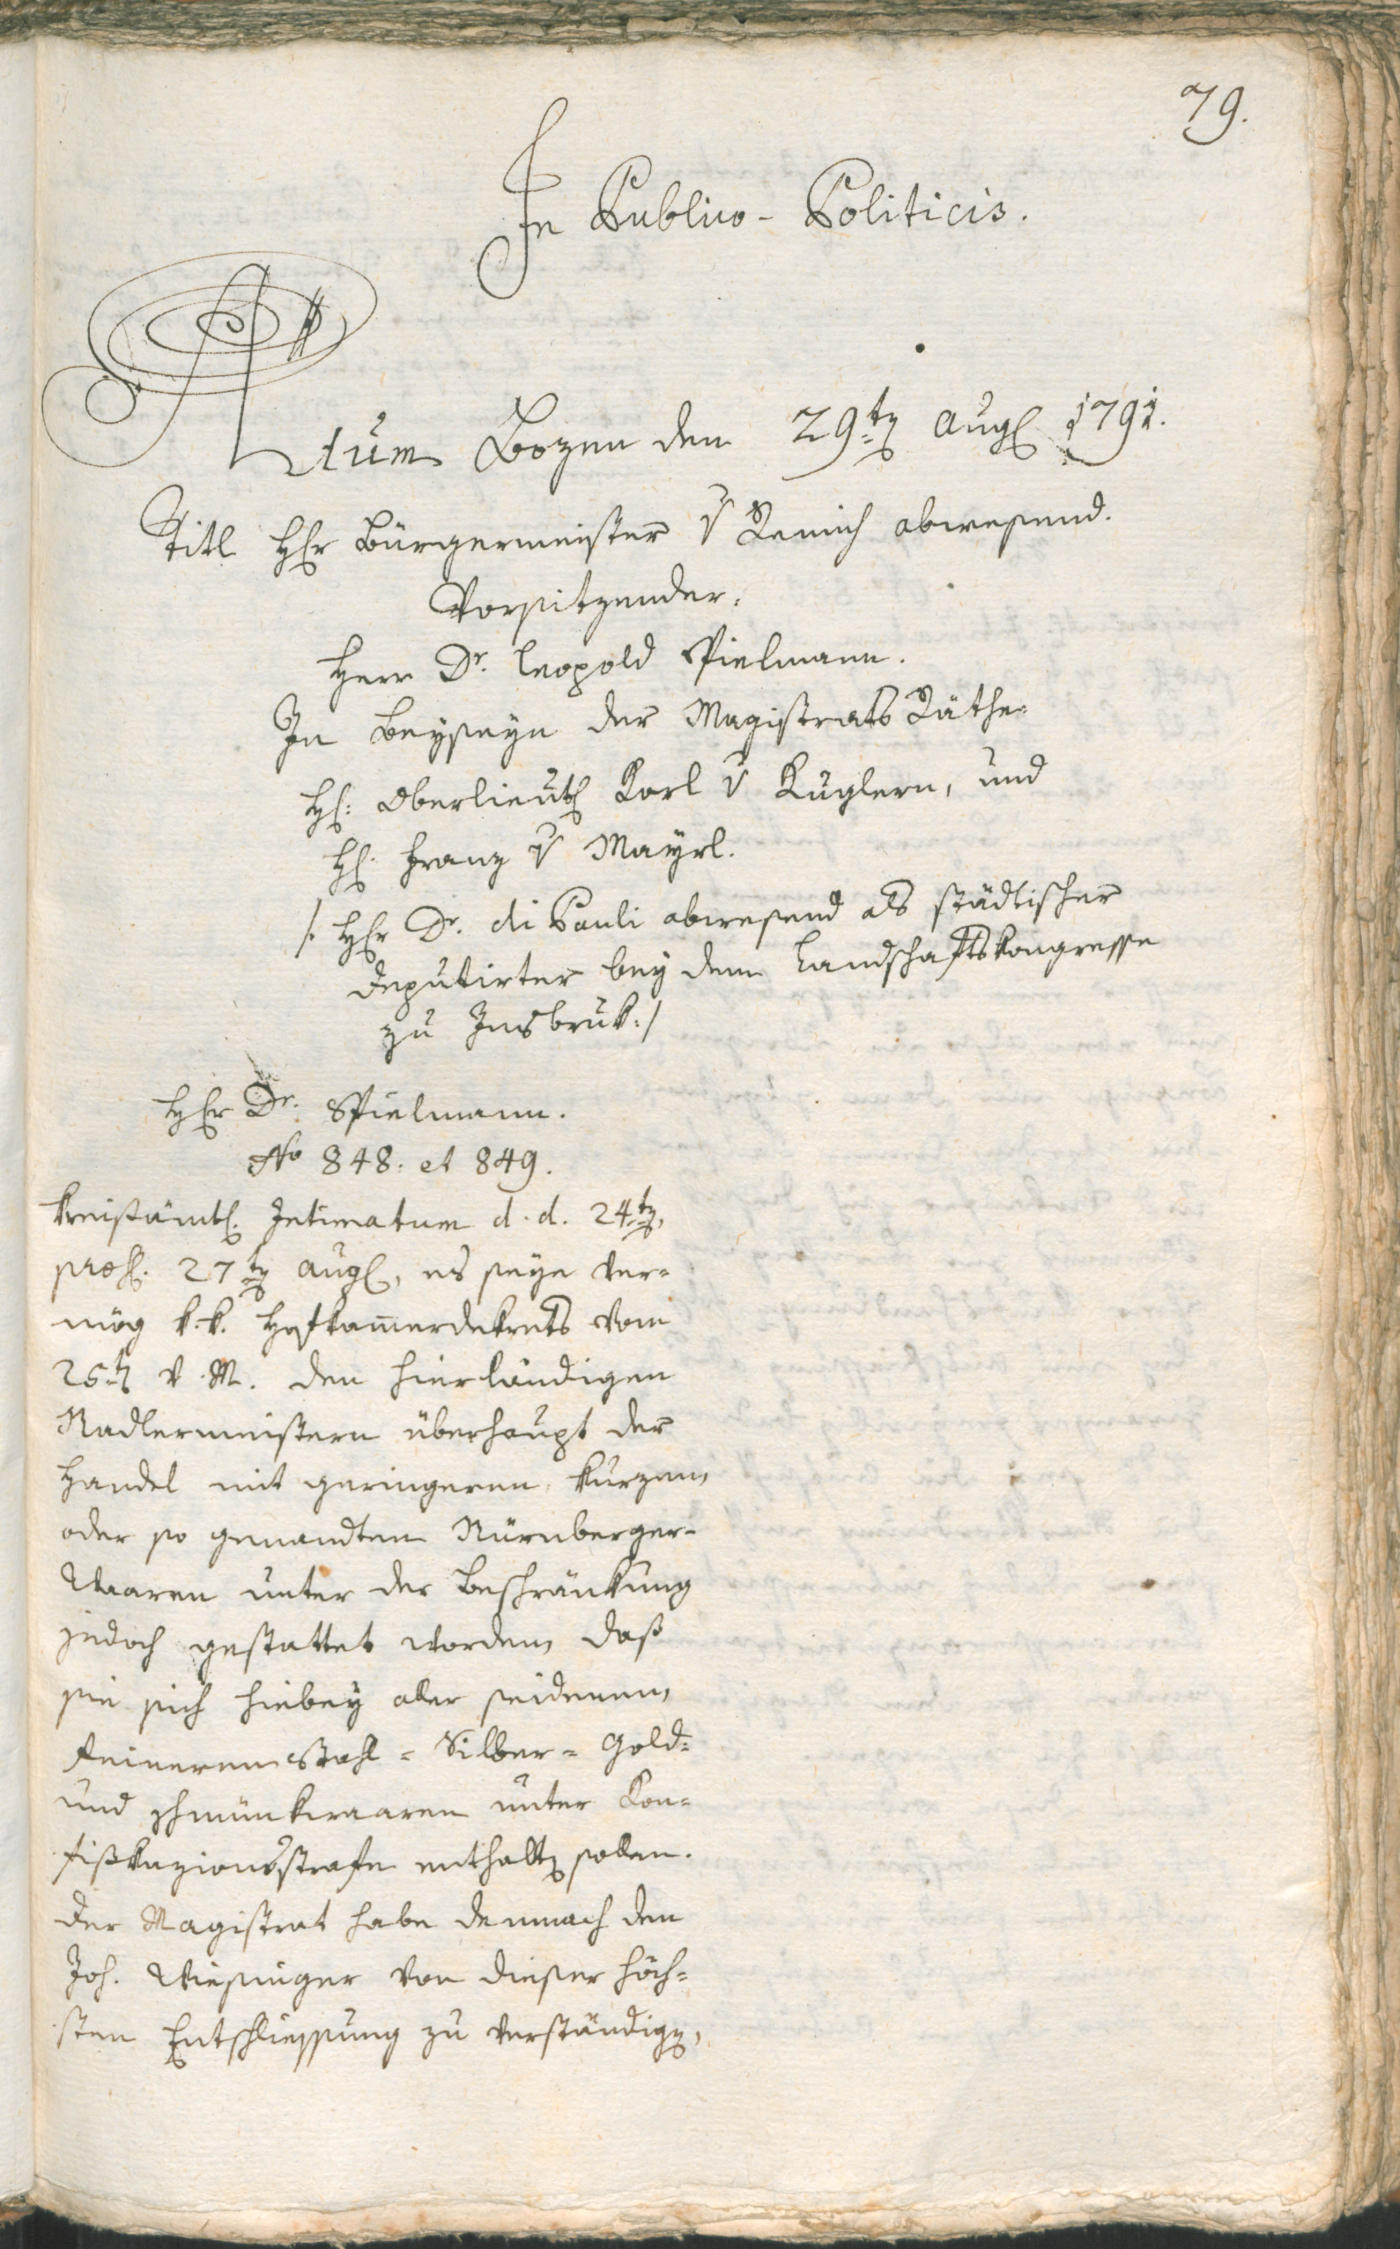 79.
In Publico-Politicis.
Actum Bozen den 29ten Aug. 1791.
Titl Herr Bürgermeister v Remich abwesend.
Vorsitzender.
Herr Dr. Leopold Spielmann.
In Beyseyn der Magistrats Räthe
H: Oberlieut. Karl v Kuglern, und
H. Franz v Mayrl.
/: Herr Dr. di Pauli abwesend als städtischer
Deputirter bey dem Landschaftskongresse
zu Insbruk :/
Herr Dr. Spielmann.
No 848. et 849.
Kreisämtl. Intimatum d. d. 24ten,
præs. 27ten Aug., es seye ver=
mög k.k. Hofkam̅erdekrets vom
25ten v. M. den hierländigen
Nadlermeistern überhaupt der
Handel mit geringeren, kurzen,
oder so genandten Nürnberger-
Waaren unter der Beschränkung
jedoch gestattet worden, daß
sie sich hiebey aller seidenen,
feineren Stahl= Silber= Gold=
und Schmukwaaren unter Kon=
fiskazionsstrafe enthalten sollen.
Der Magistrat habe demnach den
Joh. Wiesinger von dieser höch=
sten Entschliessung zu verständigen,